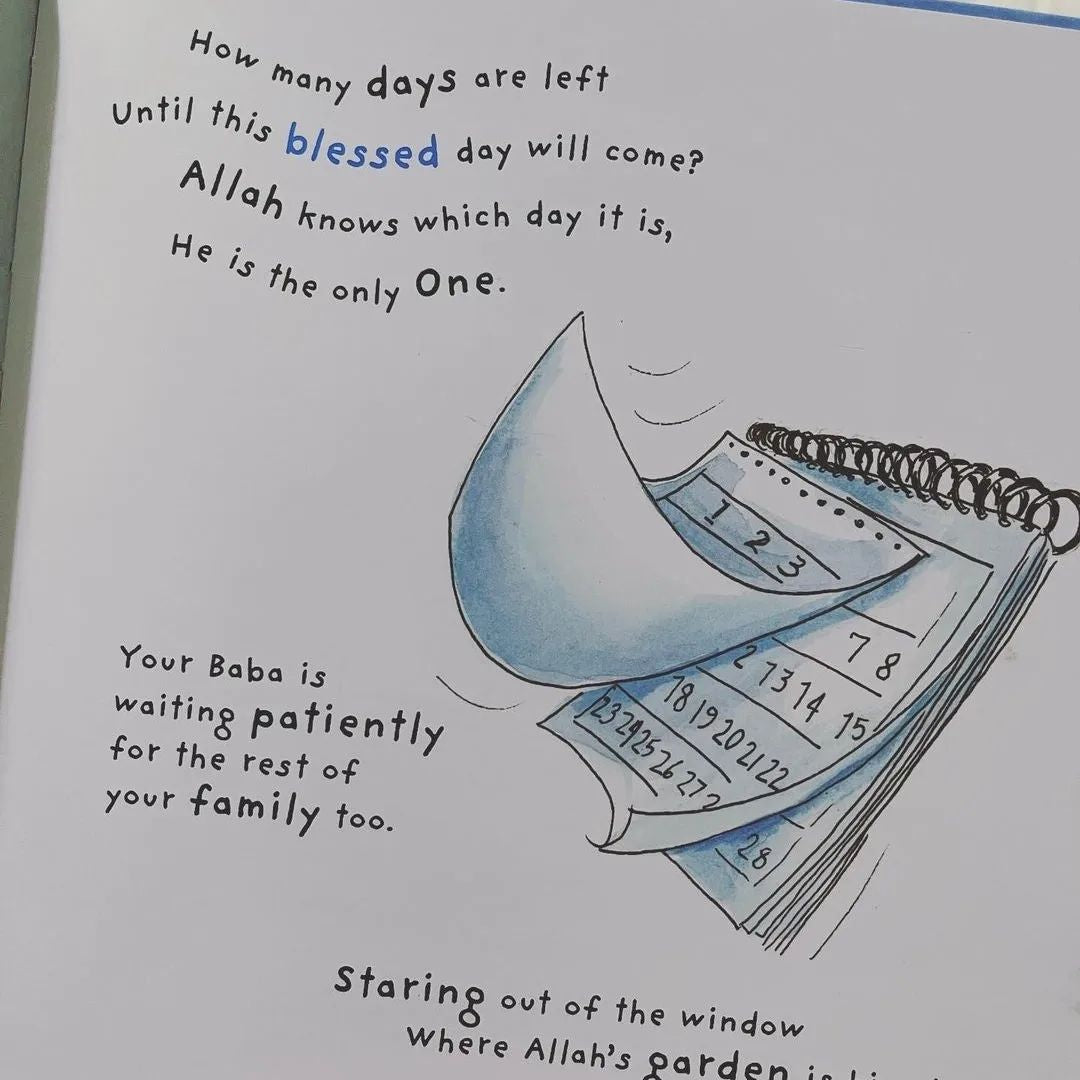 How many days are left
Until this blessed day will come?
Allah knows which day it is,
He is the only One.
1 2 3
7 8
2 13 14 15
18 19 20 21 22
23 24 25 26 27 2
28
Your Baba is
waiting patiently
for the rest of
your family too.
Staring out of the window
Where Allah's garden is